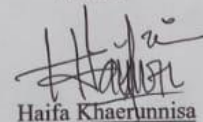 Haifa Khaerunnisa